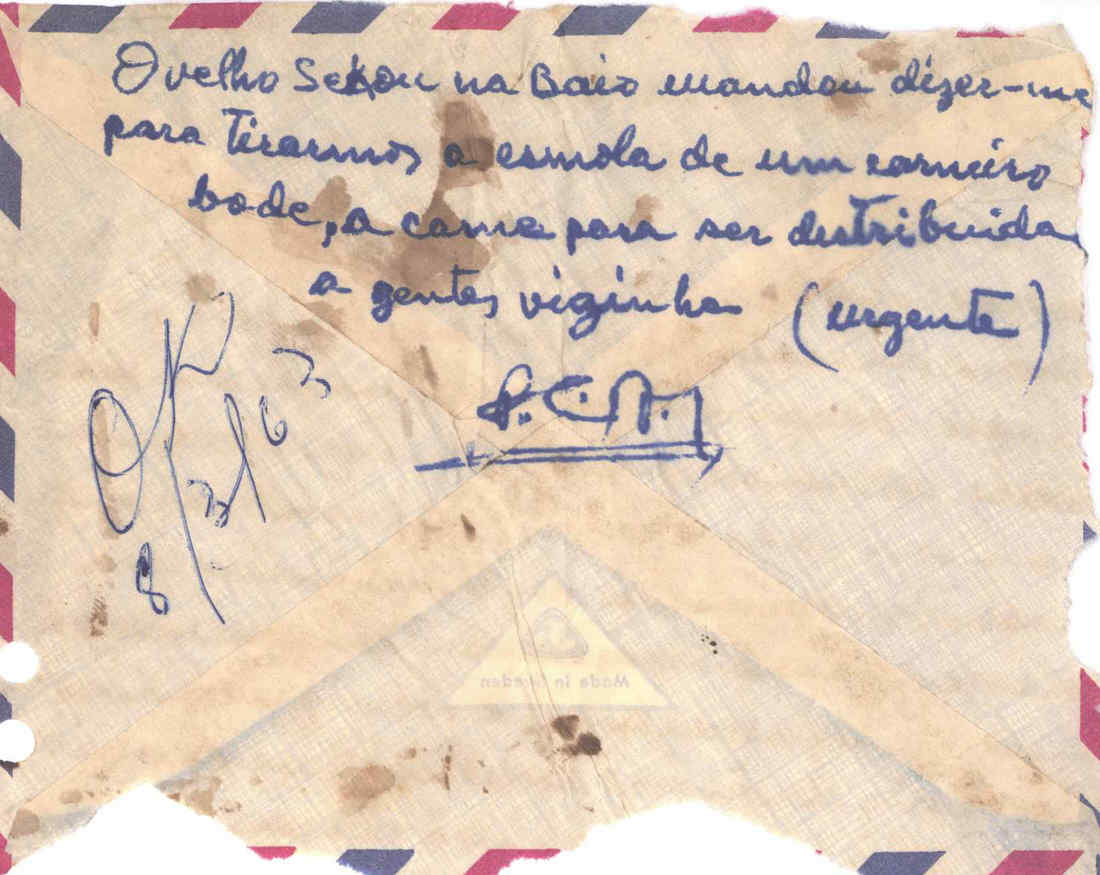 O velho Sekou na Baio mandou dizer-me
para Tirarmos a esmola de um carneiro
bode, a carne para ser distribuida
a gentes viginha (urgente)
OK
8/3/63
Made in Sweden